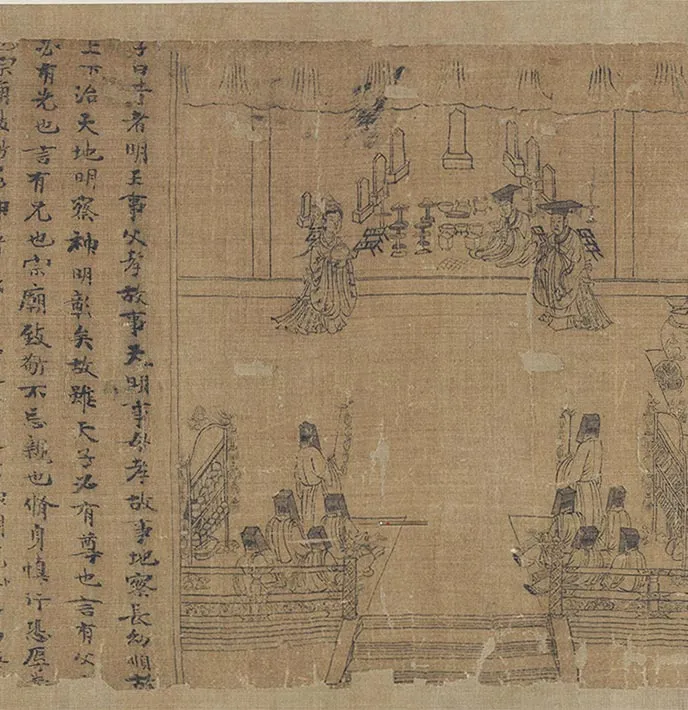 子曰昔者明王事父孝故事天明事母孝故事地察長幼順故
上下治天地明察神明彰矣故雖天子必有尊也言有父
必有先也言有兄也宗廟致敬不忘親也脩身慎行恐辱
也宗廟致敬鬼神著